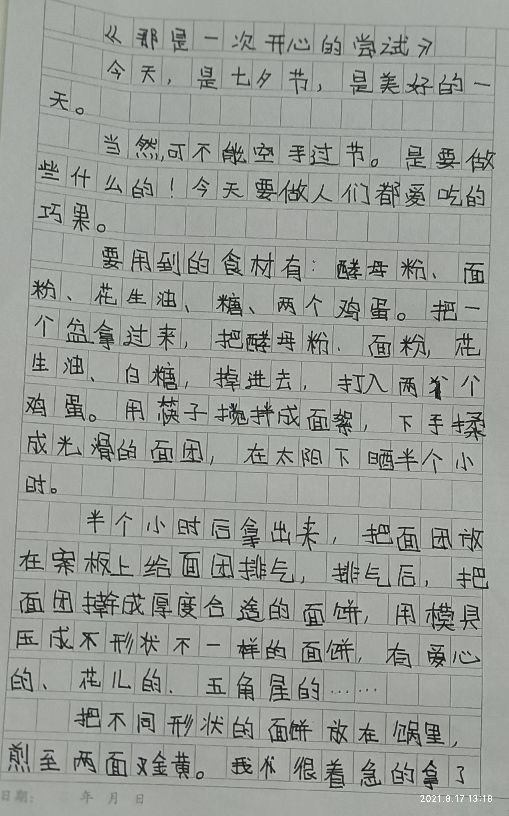 《那是一次开心的尝试》
今天，是七夕节，是美好的一
天。
当然，可不能空手过节。是要做
些什么的！今天要做人们都爱吃的
巧果。
要用到的食材有：酵母粉、面
粉、花生油、糖、两个鸡蛋。把一
个盆拿过来，把酵母粉、面粉，花
生油、白糖，掉进去，打入两个
鸡蛋。用筷子搅拌成面絮，下手揉
成光滑的面团，在太阳下晒半个小
时。
半个小时后拿出来，把面团放
在案板上给面团排气，排气后，把
面团擀成厚度合适的面饼，用模具
压成不形状不一样的面饼，有爱心
的、花儿的、五角星的……
把不同形状的面饼放在锅里，
煎至两面金黄。我很着急的拿了
日期： 年 月 日
2021.8.17 13:18